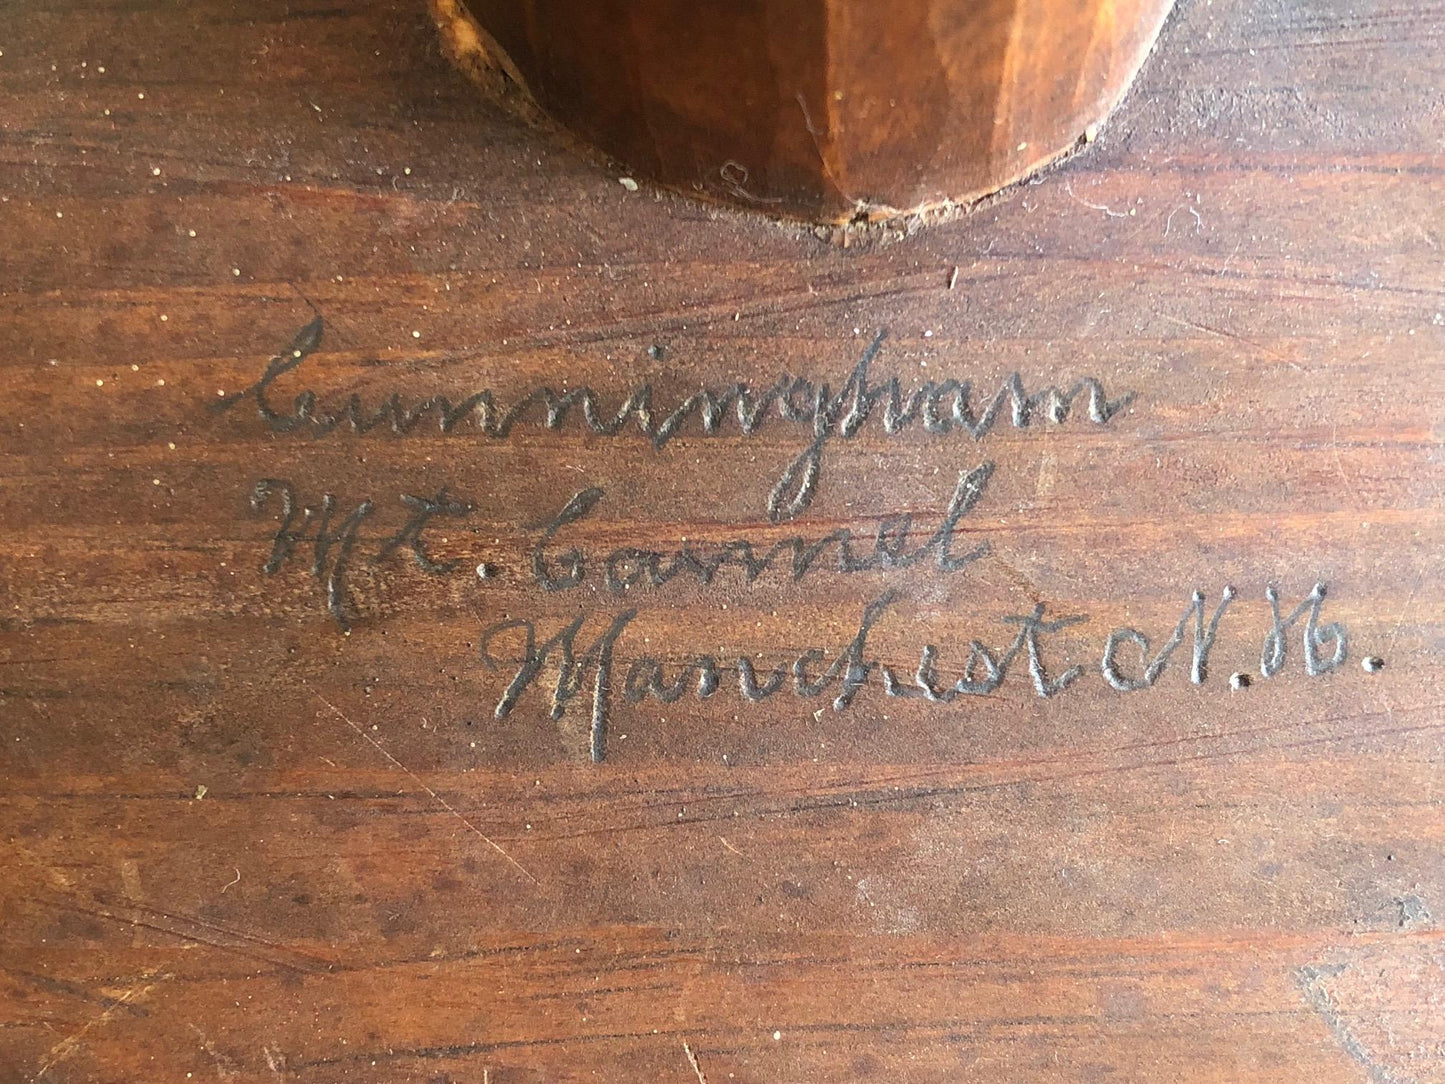 Cunningham
Mt. Carmel
Manchest N.H.